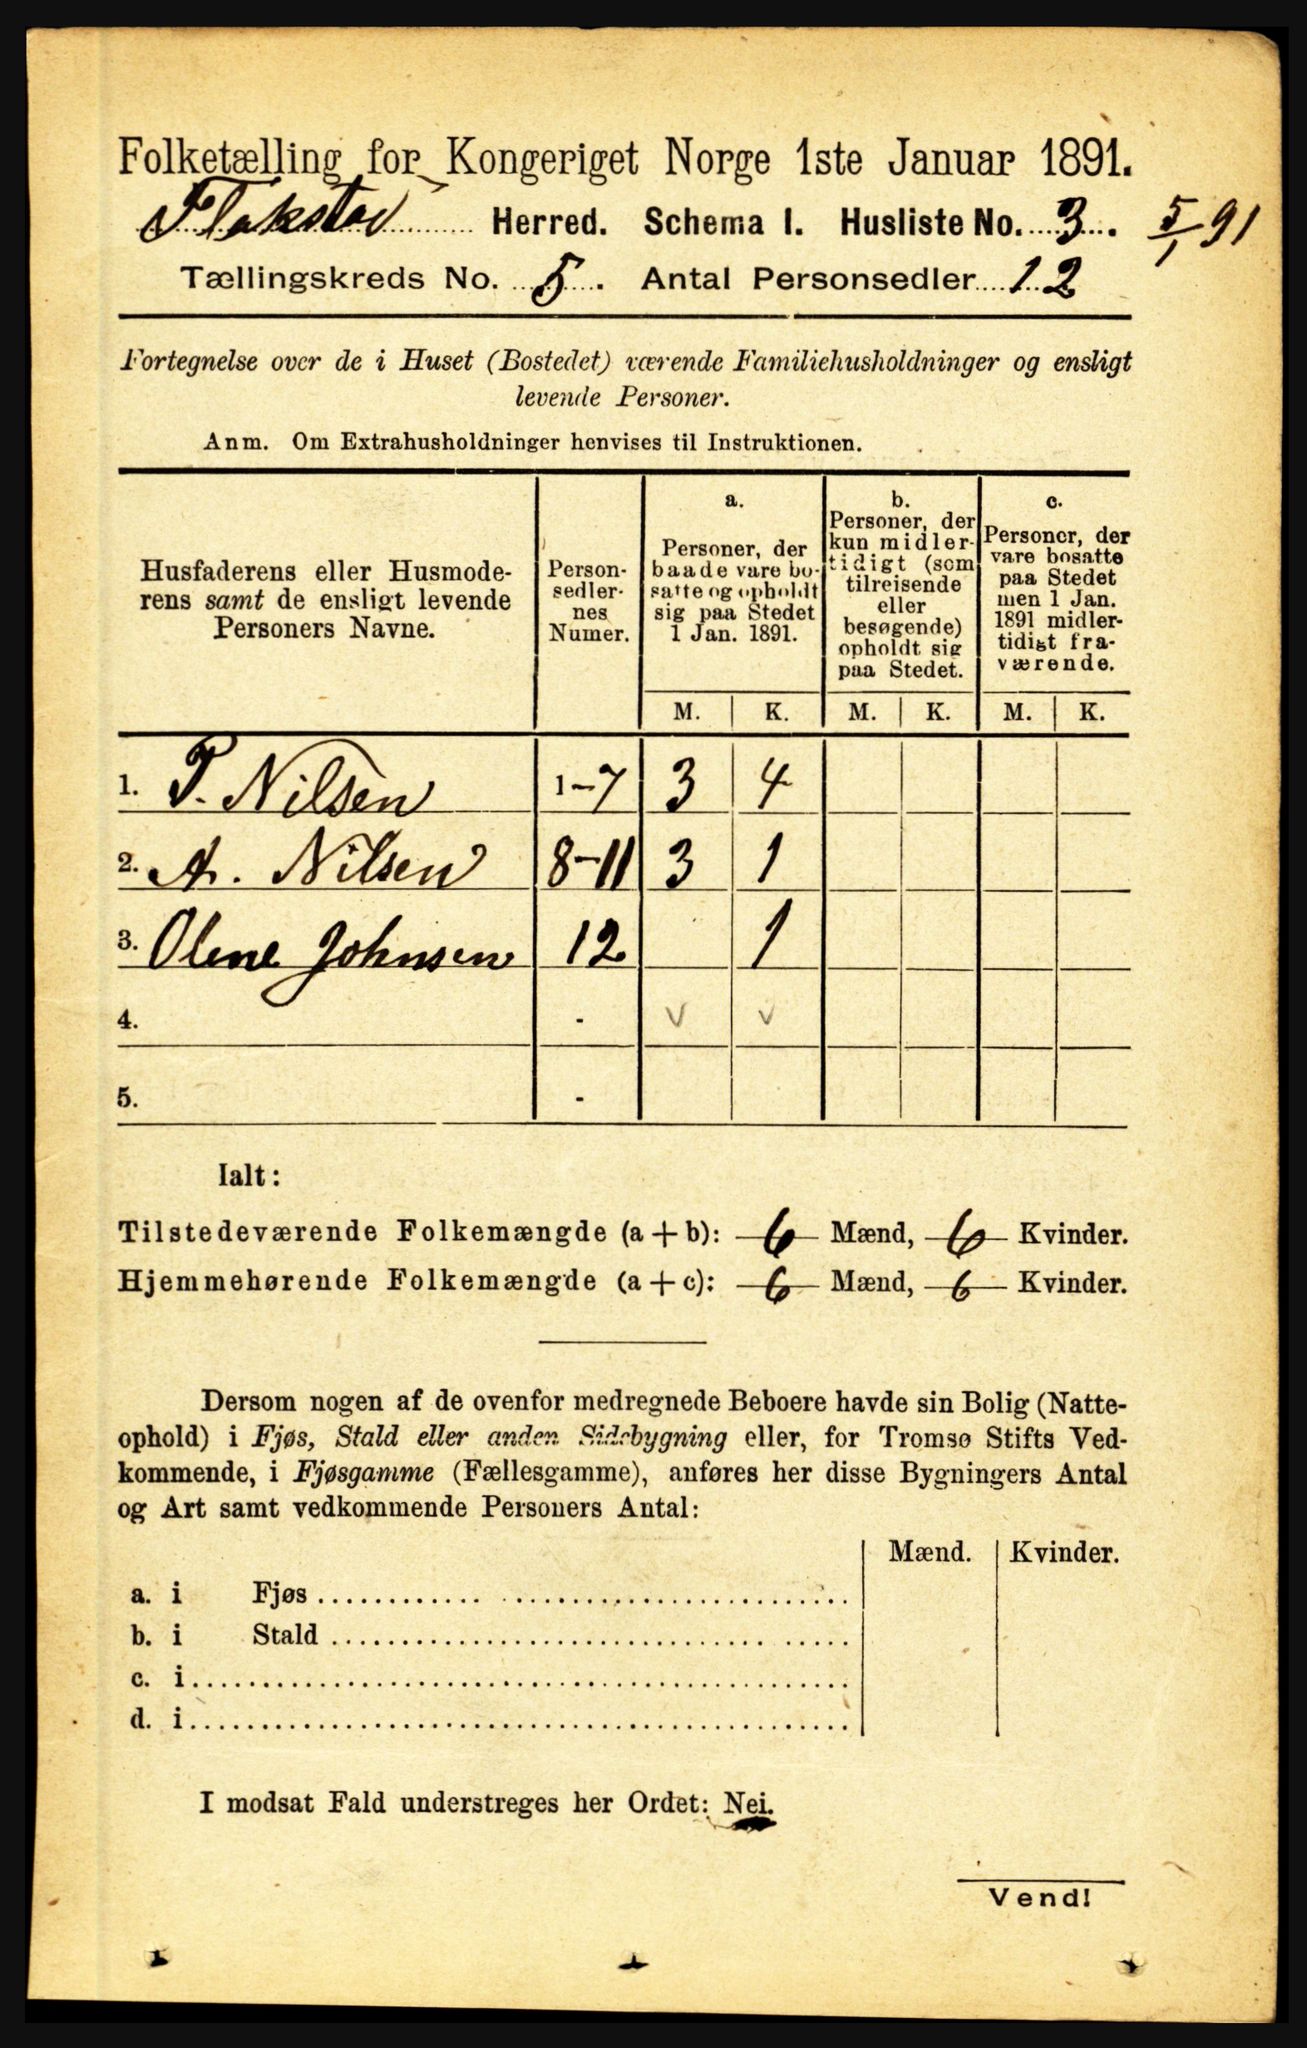 Folketælling for Kongeriget Norge 1ste Januar 1891.
Flakstad Herred. Schema I. Husliste No. 3. 5/1 91
Tællingskreds No. 5. Antal Personsedler 12
Fortegnelse over de i Huset (Bostedet) værende Familiehusholdninger og ensligt
levende Personer.
Anm. Om Extrahusholdninger henvises til Instruktionen.
Husfaderens eller Husmode-
rens samt de ensligt levende
Personers Navne.
Person-
sedler-
nes
Numer.
a.
Personer, der
baade vare bo-
satte og opholdt
sig paa Stedet
1 Jan. 1891.
b.
Personer, der
kun midler-
tidigt (som
tilreisende
eller
besøgende)
opholdt sig
paa Stedet.
c.
Personer, der
vare bosatte
paa Stedet
men 1 Jan.
1891 midler-
tidigt fra-
værende.
M. K. M. K. M. K.
1. P. Nilsen 1-7 3 4
2. A. Nilsen 8-11 3 1
3. Olene Johnsen 12 1
4. - v v
5. -
Ialt:
Tilstedeværende Folkemængde (a + b): 6 Mænd, 6 Kvinder.
Hjemmehørende Folkemængde (a + c): 6 Mænd, 6 Kvinder.
Dersom nogen af de ovenfor medregnede Beboere havde sin Bolig (Natte-
ophold) i Fjøs, Stald eller anden Sidebygning eller, for Tromsø Stifts Ved-
kommende, i Fjøsgamme (Fællesgamme), anføres her disse Bygningers Antal
og Art samt vedkommende Personers Antal:
Mænd. Kvinder.
a. i Fjøs
b. i Stald
c. i
d. i
I modsat Fald understreges her Ordet: Nei.
Vend!